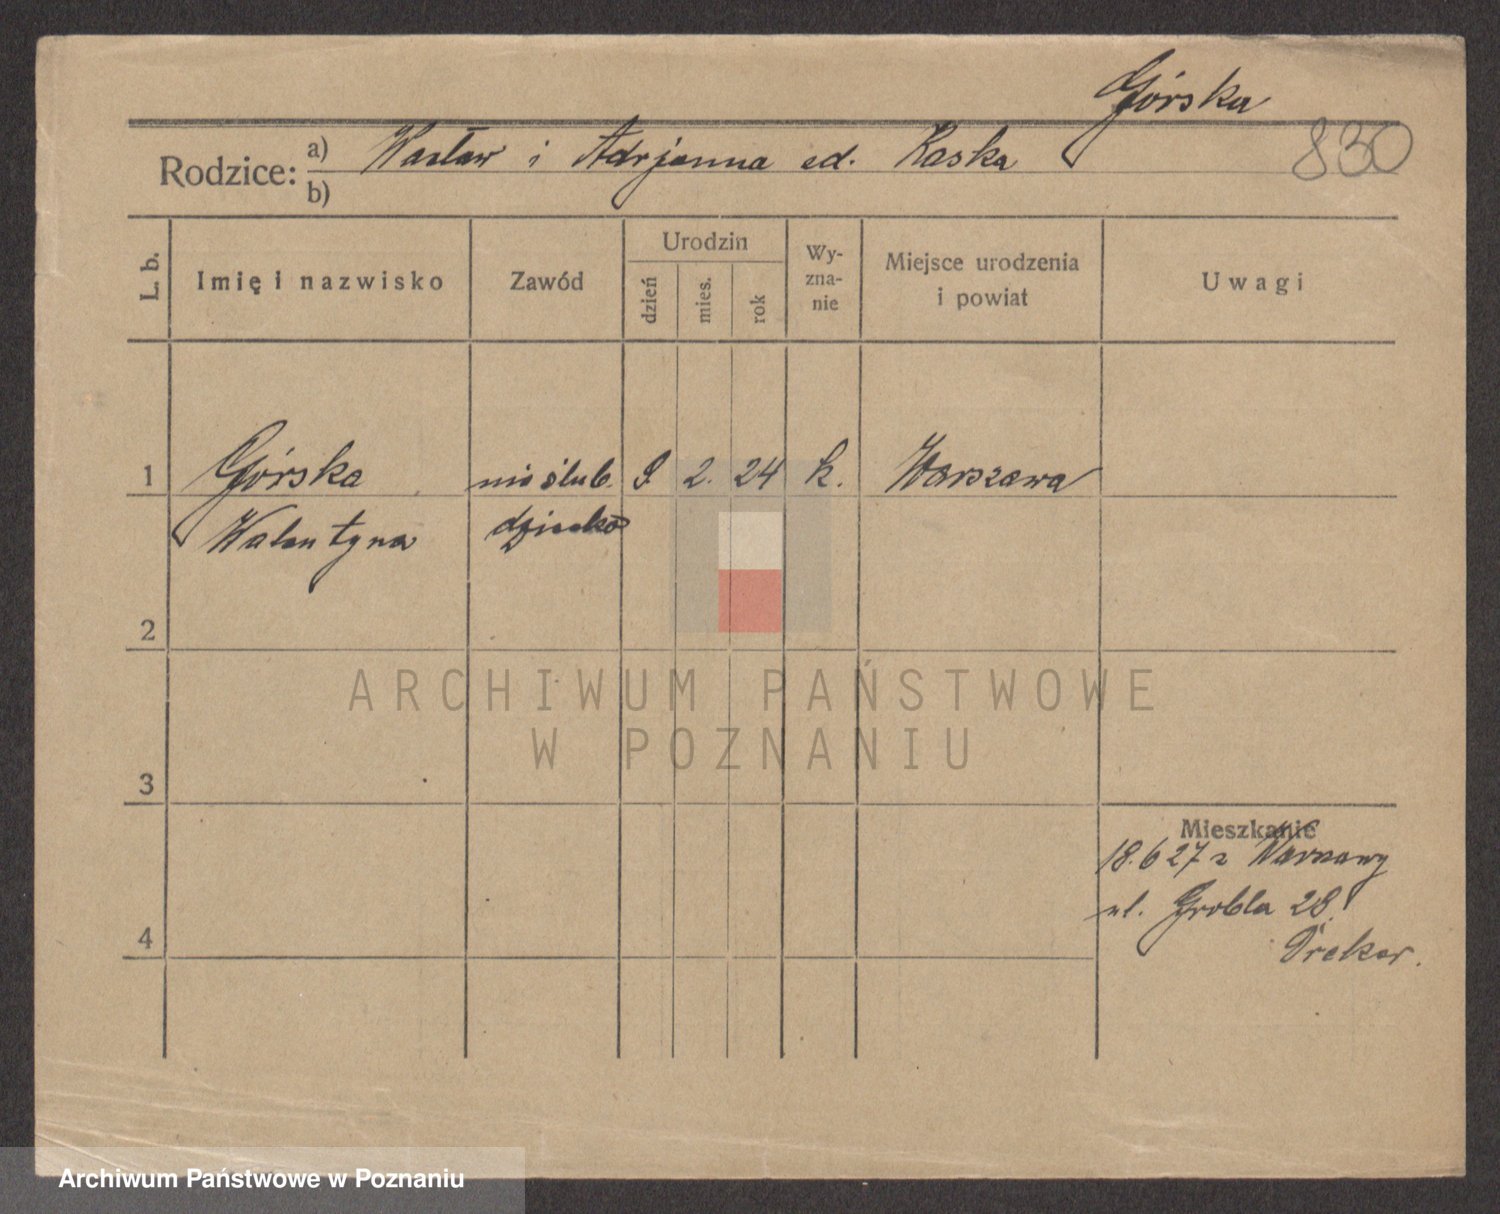 Górska
830
Rodzice: a) Wacław i Adrjanna Raska
b)
L. b.
Imię i nazwisko
Zawód
Urodzin
dzień
mies.
rok
Wy-
zna-
nie
Miejsce urodzenia
i powiat
Uwagi
1 Górska nieślub. 9. 2. 24 k. Warszawa
Walentyna dziecko
2
3
4
Mieszkanie
18.6 27 z Warszawy
ul. Grobla 28
ARCHIWUM PAŃSTWOWE
W POZNANIU
Archiwum Państwowe w Poznaniu